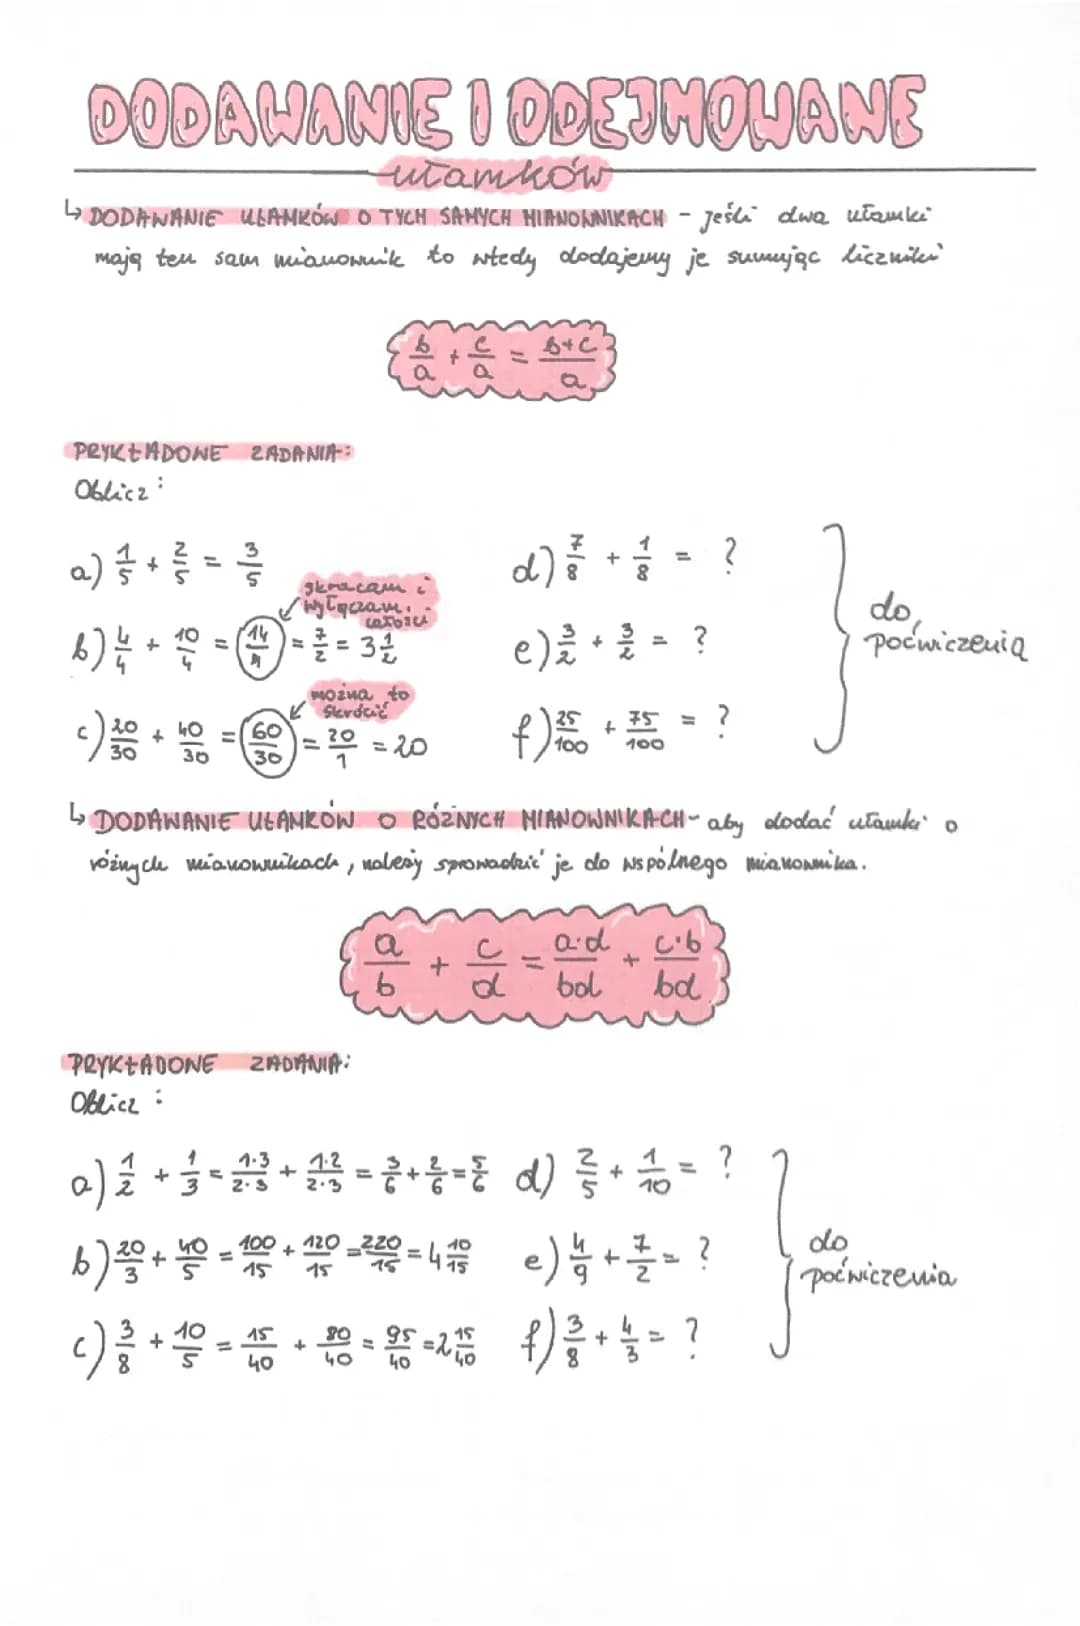 DODAWANIE I ODEJMOWANE
ułamków
↳ DODAWANIE UŁAMKÓW O TYCH SAMYCH MIANOWNIKACH - jeśli dwa ułamki
mają ten sam mianownik to wtedy dodajemy je sumując liczniki
b/a + c/a = b+c/a
PRYKŁADOWE ZADANIA:
Oblicz:
a) 1/5 + 2/5 = 3/5
skracam i wyłączam całości
b) 4/4 + 10/4 = 14/4 = 7/2 = 3 1/2
można to skrócić
c) 20/30 + 40/30 = 60/30 = 20/1 = 20
d) 7/8 + 1/8 = ?
e) 3/2 + 3/2 = ?
f) 25/100 + 75/100 = ?
do poćwiczenia
↳ DODAWANIE UŁAMKÓW O RÓŻNYCH MIANOWNIKACH - aby dodać ułamki o
różnych mianownikach, należy sprowadzić je do wspólnego mianownika.
a/b + c/d = a·d/bd + c·b/bd
PRYKŁADOWE ZADANIA:
Oblicz:
a) 1/2 + 1/3 = 1·3/2·3 + 1·2/2·3 = 3/6 + 2/6 = 5/6
b) 20/3 + 40/5 = 100/15 + 120/15 = 220/15 = 4 10/15
c) 3/8 + 10/5 = 15/40 + 80/40 = 95/40 = 2 15/40
d) 2/5 + 1/10 = ?
e) 4/9 + 7/2 = ?
f) 3/8 + 4/3 = ?
do poćwiczenia